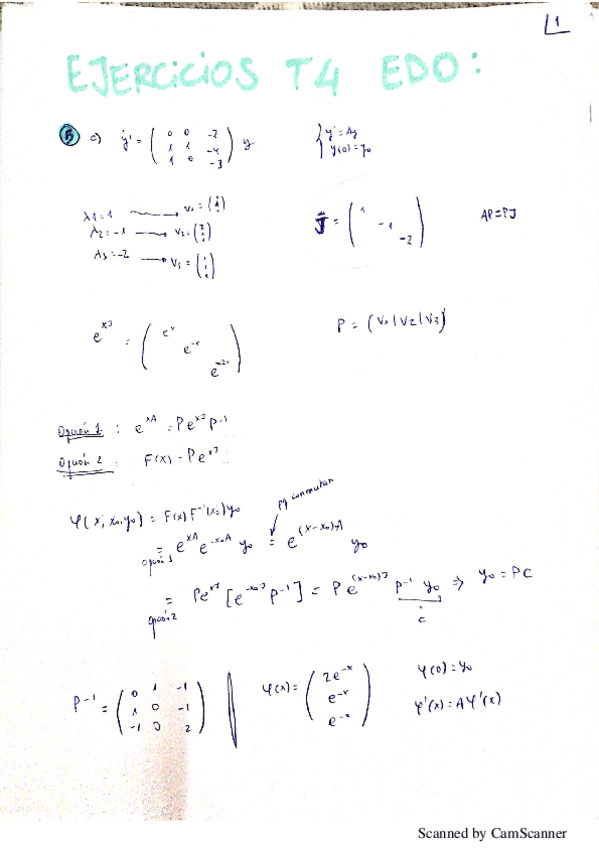 1
EJERCICIOS T4 EDO:
5 c) y' = ( 0 0 -2 / 1 1 -4 / 1 0 -3 ) y { y' = Ay / y(0) = y₀
λ1 = 1 → v₁ =
λ2 = -1 → v₂ =
λ3 = -2 → v3 =
J = ( 1 / -1 / -2 ) AP = PJ
e^xJ = ( e^x / e^-x / e^-2x ) P = (v₁|v₂|v3)
Opción 1: e^xA = Pe^xJ P^-1
Opción 2: F(x) = Pe^xJ
φ(x; x₀, y₀) = F(x) F^-1(x₀) y₀ conmutan
= e^xA e^-x₀A y₀ = e^(x-x₀)A y₀
opción 1
= Pe^xJ [e^-x₀J P^-1] = P e^(x-x₀)J P^-1 y₀ ⇒ y₀ = PC
opción 2 c
P^-1 = ( 0 1 -1 / 1 0 -1 / -1 0 2 ) φ(x) = ( 2e^-x / e^-x / e^-x ) φ(0) = y₀
φ'(x) = Aφ'(x)
Scanned by CamScanner